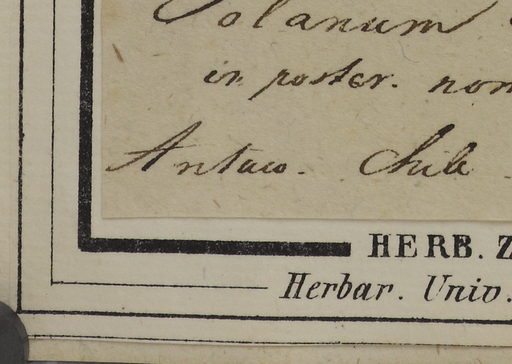 Solanum
in poster. nom
Antuco. Chile
HERB. Z
Herbar. Univ.